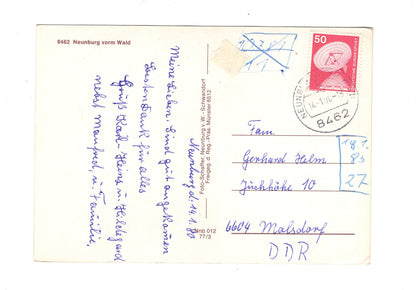 8462 Neunburg vorm Wald
Neunburg d. 14.1.80
Meine Lieben. Sind gut angekommen
Besten Dank für alles
Gruß Karl-Heinz u. Hildegard
nebst Manfred, u. Familie,
Foto-Schaffer, Neunburg v. W.-Schwandorf
Freigeg. d. Reg.-Präs. Münster 6012
Nnb 012
77/3
50
DEUTSCHE BUNDESPOST
14.-1.80
8462
11
Fam.
Gerhard Helm
Jüchhöhe 10
6604 Malsdorf
DDR
18.1.
85
27